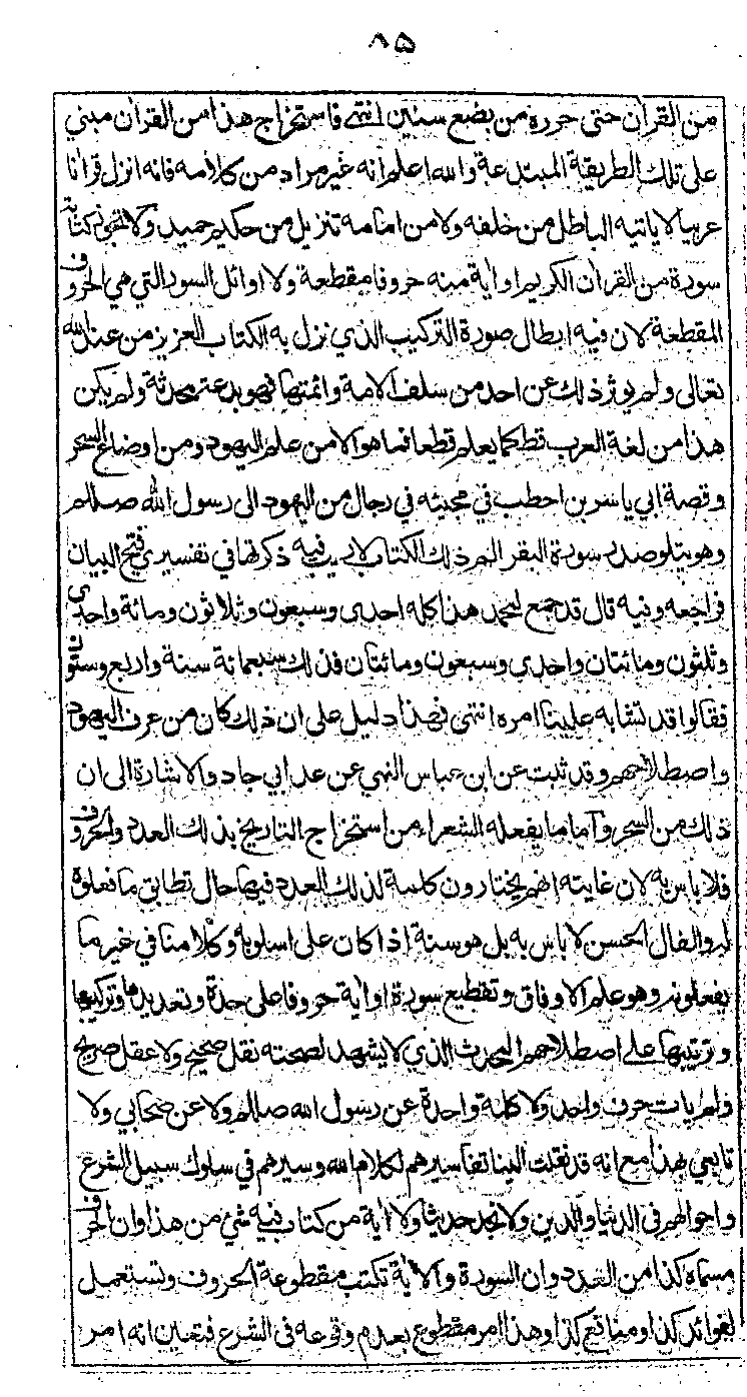 ٨٥
من القرآن حتى حرره من بضع سنين انتهى فاستخراج هذا من القرآن مبني
على تلك الطريقة المبتدعة والله اعلم انه غير مراد من كلامه فانه انزل قرآنا
عربيا لا ياتيه الباطل من خلفه ولا من امامه تنزيل من حكيم حميد ولا تجوز كتابة
سورة من القرآن الكريم او اية منه حروفا مقطعة ولا اوائل السور التي هي الحروف
المقطعة لان فيه ابطال صورة التركيب الذي نزل به الكتاب العزيز من عند الله
تعالى ولم يوثر ذلك عن احد من سلف الامة وائمتها فهو بدعة محدثة ولم يكن
هذا من لغة العرب قط كما يعلم قطعا فما هو الا من علم اليهود ومن اوضاع السحر
وقصة ابي ياسر بن احطب في مجيئه في رجال من اليهود الى رسول الله صلالم
وهو يتلو صدر سورة البقر الم ذلك الكتاب لا ريب فيه ذكرتها في تفسيري فتح البيان
فراجعه وفيه قال قد جمع لمحمد هذا كله احدى وسبعون وثلاثون ومائة واحدى
وثلثون ومائتان واحدى وسبعون ومائتان فذلك سبعمائة سنة واربع وستون
فقالوا قد تشابه علينا امره انتهى فهذا دليل على ان ذلك كان من عرف اليهود
واصطلاحهم وقد ثبت عن ابن عباس النهي عن عد ابي جاد والاشارة الى ان
ذلك من السحر وآما ما يفعله الشعراء من استخراج التاريخ بذلك العدد والحروف
فلا باس به لان غايته انهم يختارون كلمة لذلك العدد فيها حال تطابق ما فعلوه
له والفال الحسن لا باس به بل هو سنة اذا كان على اسلوبه وكلامنا في غير ما
يفعلونه وهو علم الاوفاق وتقطيع سورة او اية حروفا على حدة وتعديدها وتركيبها
وترتيبها على اصطلاحهم المحدث الذي لا يشهد لصحته نقل صحيح ولا عقل صريح
ولم يات حرف واحد ولا كلمة واحدة عن رسول الله صلالم ولا عن صحابي ولا
تابعي بهذا مع انه قد نقلت الينا تفاسيرهم لكلام الله وسيرهم في سلوك سبيل الشرع
واحوالهم في الدنيا والدين ولا تجد حديثا ولا اية من كتاب فيه شئ من هذا وان الحرف
مسماه كذا من العدد وان السورة والاية تكتب مقطوعة الحروف وتستعمل
لفوائد كذا ومنافع كذا وهذا امر مقطوع بعدم وقوعه في الشرع فتعين انه امر